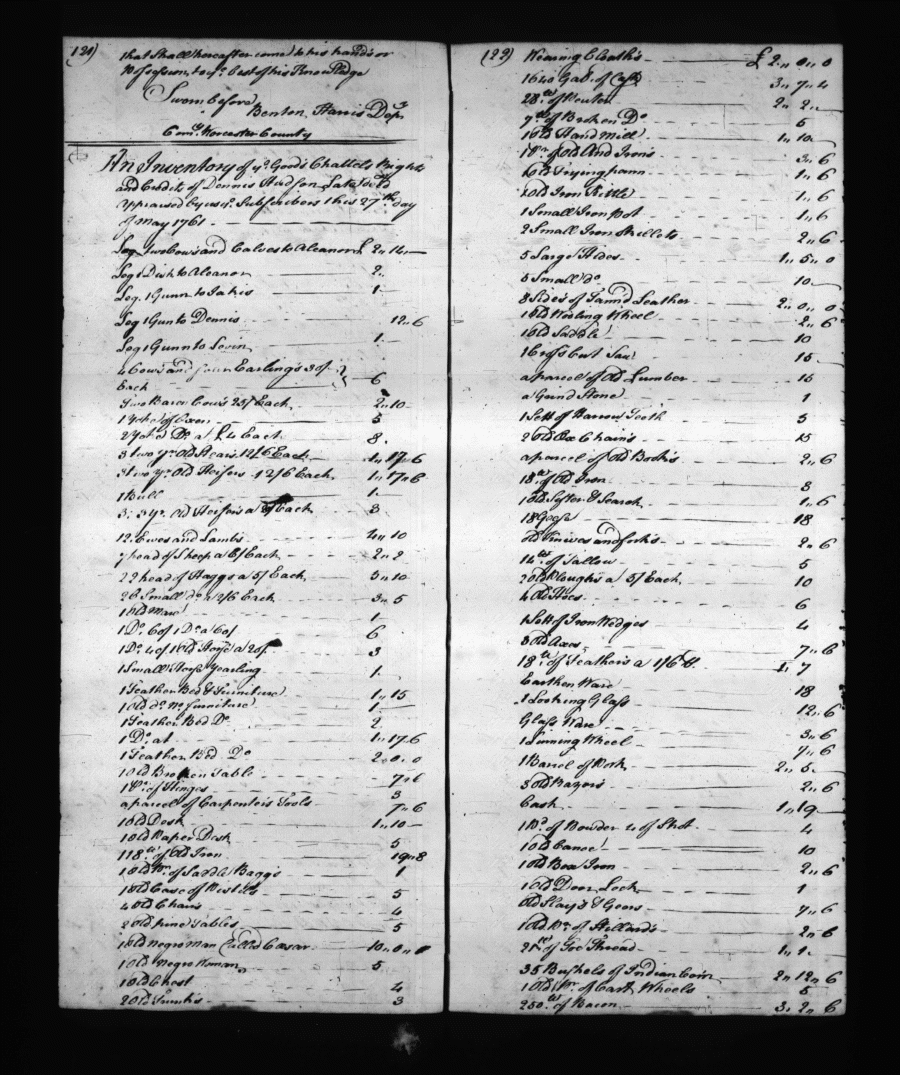 (121)
that Shall hereafter come to his hands or
Possession, to ye best of his Knowledge
Sworn before
Benton Harris Depy
Comy Worcester County
An Inventory of ye Goods Chattels Rights
and Credits of Dennis Hudson Late
Appraised by us ye Subscribers this 27th day
of May 1761
Leg. Two Cows and Calves to Aleanor £ 2,, 14,, —
Leg 1 Dish to Aleanor 2.
Leg. 1 Gunn to 1.
Leg 1 Gun to Dennis 12,, 6
Leg 1 Gunn to Levin 1.
4 Cows and four Earlings 30/
Each 6
Two Baren Cows 25/ Each 2,, 10
1 Yoke of Oxen 5
2 Yoke Do a £4 Each 8.
3 two yr. Old Stears 12/6 Each 1,, 17,, 6
3 two yr Old Heifers 12/6 Each 1,, 17,, 6
1 Bull 1.
3. 3 yr. Old Heifers a Each 3.
12 Ewes and Lambs 4,, 10
7 head of Sheep a 6/ Each 2,, 2
22 head of Hoggs a 5/ Each 5,, 10
26 Small do a 2/6 Each 3,, 5
1 Old Mare 1.
1 Do 60/ 1 Do a 60/ 6
1 Do 40/ 1 Old Horse a 20/ 3
1 Small Horse Yearling 1.
1 Feather Bed & Furniture 1,, 15
1 Old do No furniture 1
1 Feather Bed Do 2
1 Do at 1,, 17,, 6
1 Feather Bed Do 2,, 0,, 0
1 Old Broken Table 7,, 6
1 Pr. of Hinges 3
a parcel of Carpenters Tools 7,, 6
1 Old Desk 1,, 10 —
1 Old Paper Desk 5
118 lb of Old Iron 19,, 8
1 Old Pr. of Saddle Baggs 1
1 Old Case of Pistols 5
4 Old Chairs 4
2 Old pine Tables 5
1 old Negro Man Called Ceasar 10,, 0,, 0
1 Old Negro Woman 5
1 Old Chest 4
2 Old Trunks 3
(122) Wearing Cloaths £ 2,, 0,, 0
1640 Gal. of Cask 3,, 7,, 4
28 lb. of Pewter 2,, 2,,
9 lb of Broken Do 5
1 Old Hand Mill 1,, 10
1 Pr. of Old And Irons 3,, 6
1 Old Frying pann 1,, 6
1 Old Iron Kittle 1,, 6
1 Small Iron pot 1,, 6
2 Small Iron Skillets 2,, 6
5 Large Hides 1,, 5,, 0
5 Small do 10
8 Sides of Tann'd Leather 2,, 0,, 0
1 Old Wooling Wheel 2,, 6
1 Old Saddle 10
1 Cross Cut Saw 15
a parcel of Old Lumber 15
a Grind Stone 1
1 Sett of Harrow Teeth 5
2 Old Ox Chains 15
a parcel of Old Books 2,, 6
18 lb. of Old Iron 3
1 Old Sifter & Search 1,, 6
18 Geese 18
Old Knives and forks 2,, 6
14 lb of Tallow 5
2 Old Ploughs a 5/ Each 10
4 Old Hoes 6
1 Sett of Iron Wedges 4
3 Old Axes 7,, 6
18 lb. of Feathers a 1/6 lb. 1,, 7
Earthen Ware 18
1 Looking Glass 12,, 6
Glass Ware 3,, 6
1 Linning Wheel 7,, 6
1 Barrel of Pork 2,, 5.
3 Old Razors 2,, 6
Cash 1,, 19
1 lb. of Powder 4 of Shot 4
1 Old Canoe 10
1 Old Box Iron 2,, 6
1 Old Door Lock 1
Old Slays & Geers 7,, 6
1 Old Pr. of Stillards 2,, 6
21 lb of Toe Thread 1,, 1.
35 Bushels of Indian Corn 2,, 12,, 6
1 Old Pr. of Cart Wheels 5
250 lb of Bacon 3,, 2,, 6